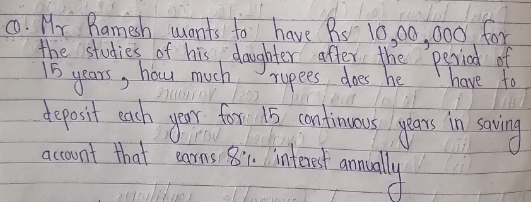 Q. Mr Ramesh wants to have Rs 10,00,000 for
the studies of his daughter after the period of
15 years, how much rupees does he have to
deposit each year for 15 continuous years in saving
account that earns 8% interest annually